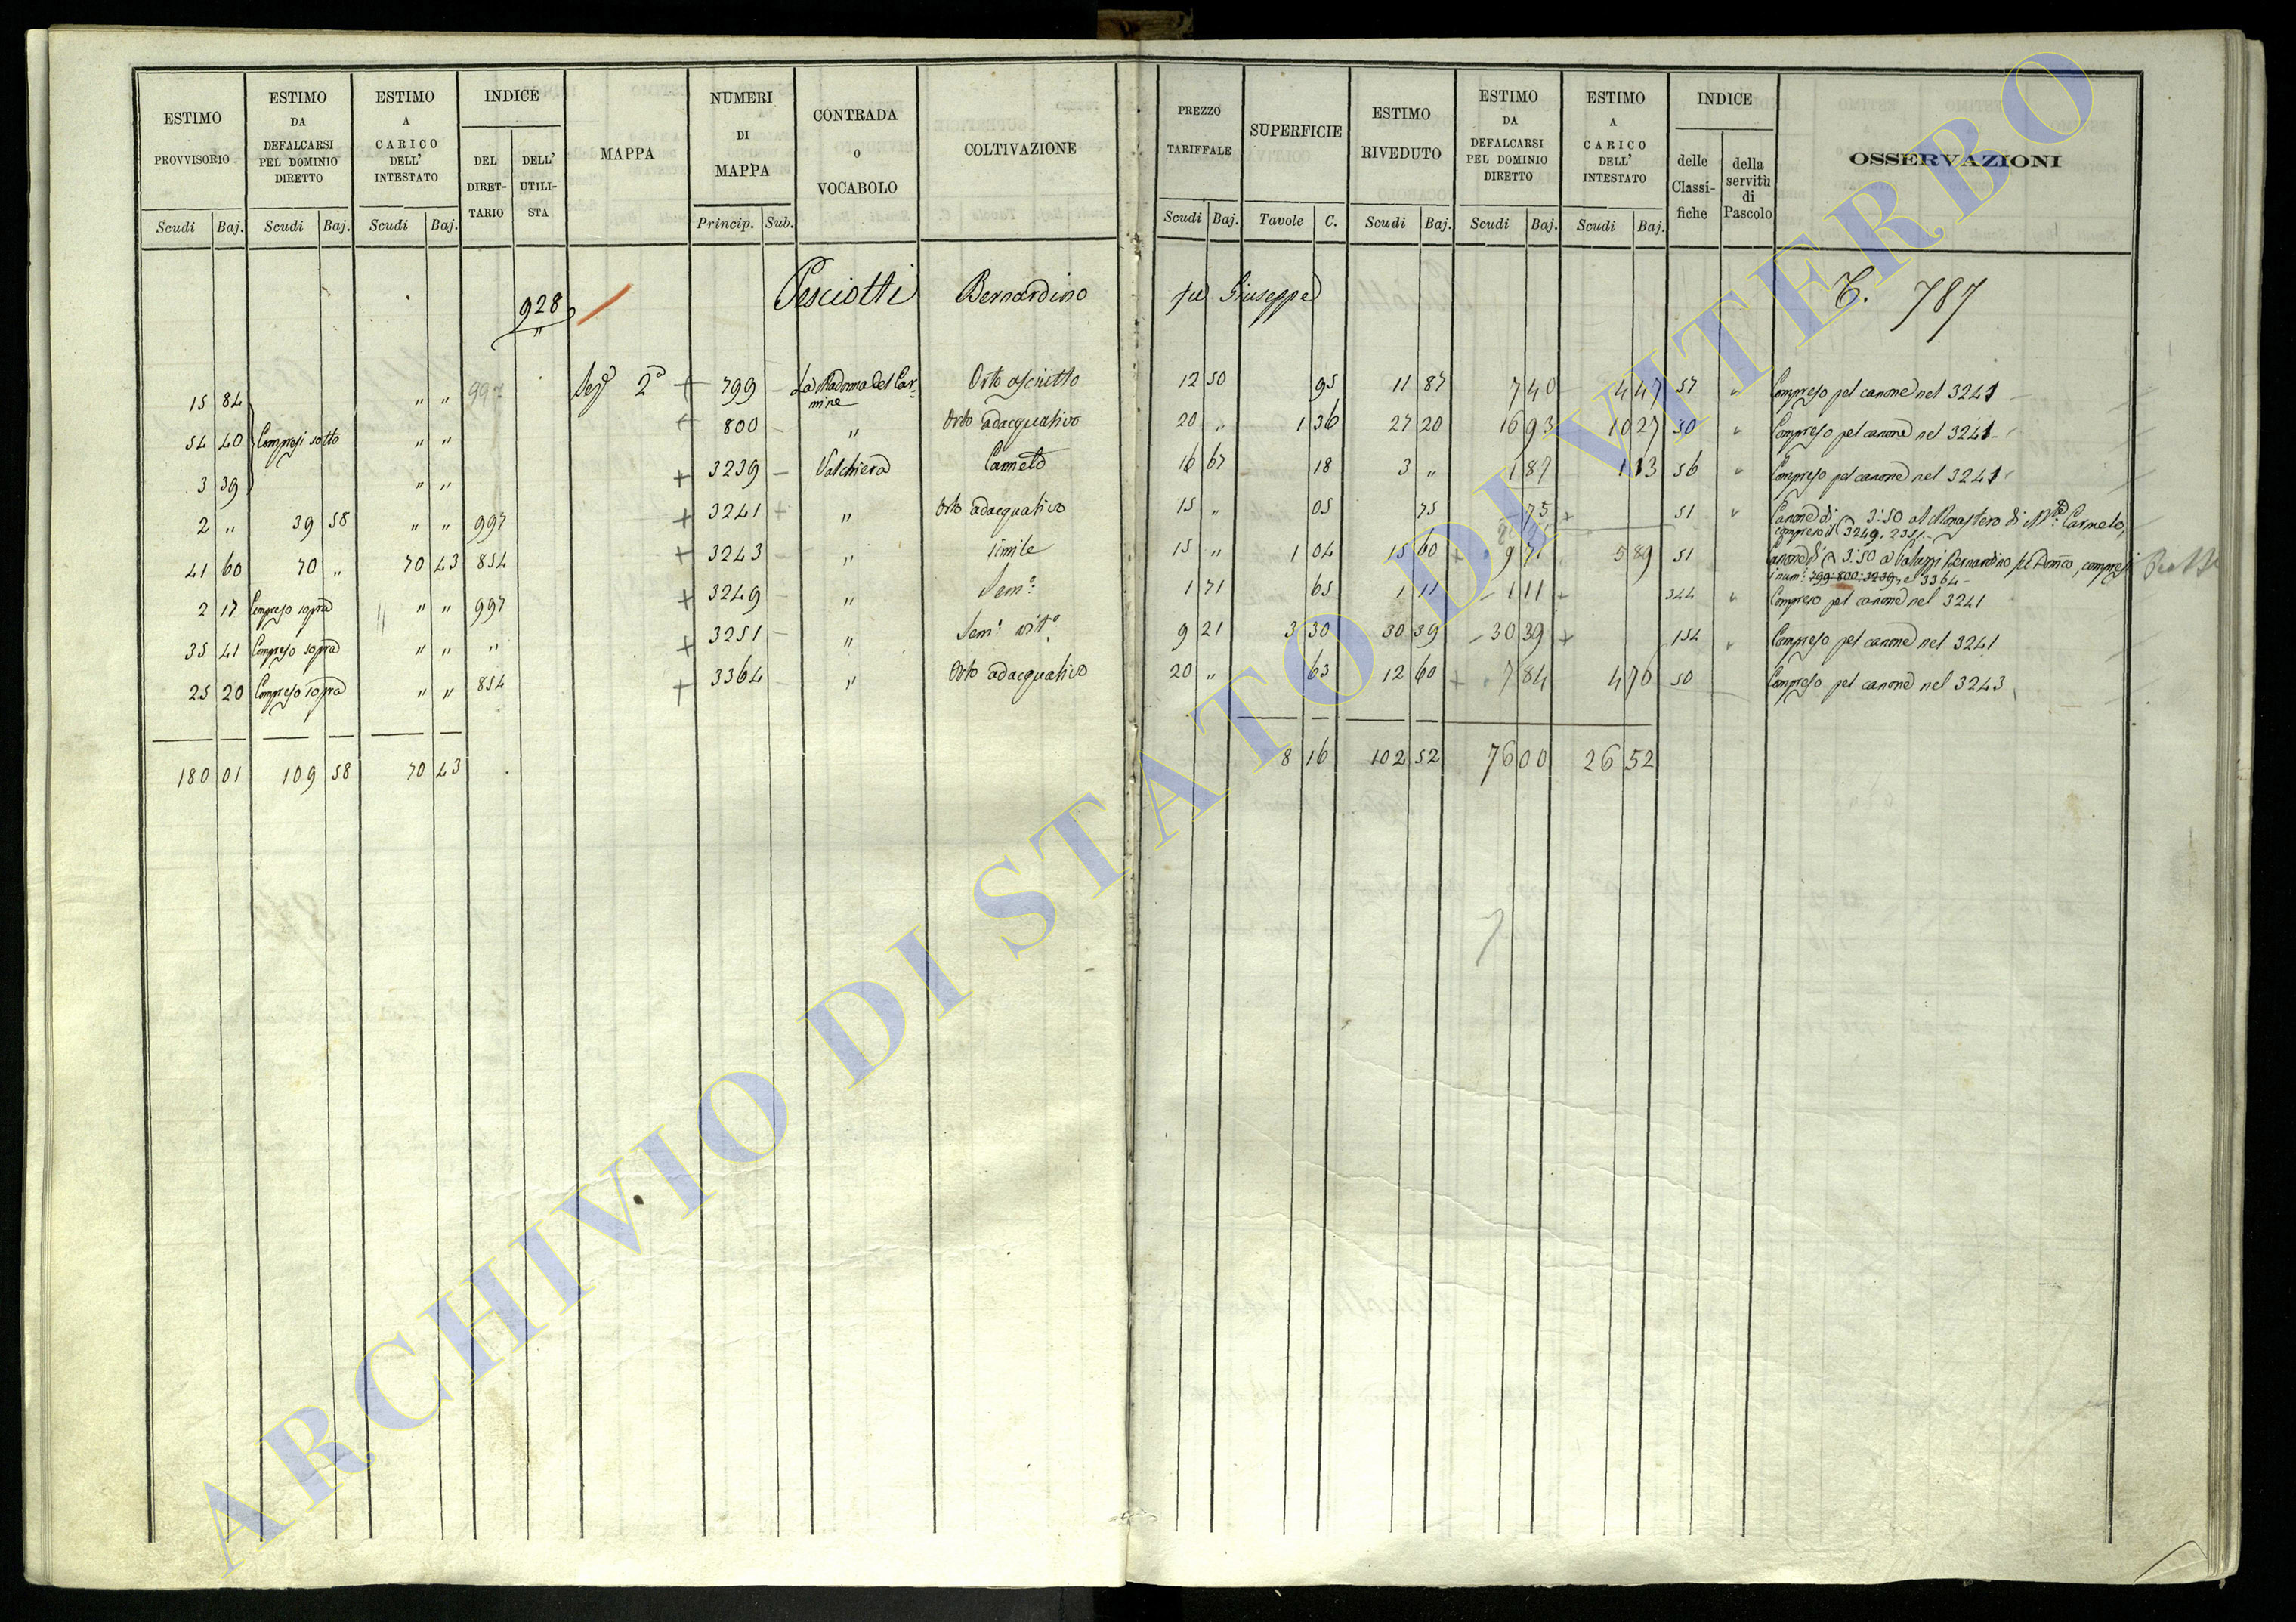 ESTIMO PROVVISORIO | ESTIMO DA DEFALCARSI PEL DOMINIO DIRETTO | ESTIMO A CARICO DELL' INTESTATO | INDICE | MAPPA | NUMERI DI MAPPA | CONTRADA O VOCABOLO | COLTIVAZIONE | PREZZO TARIFFALE | SUPERFICIE | ESTIMO RIVEDUTO | ESTIMO DA DEFALCARSI PEL DOMINIO DIRETTO | ESTIMO A CARICO DELL' INTESTATO | INDICE | OSSERVAZIONI
DEL DIRET-TARIO | DELL' UTILI-STA | delle Classi-fiche | della servitù di Pascolo
Scudi | Baj. | Scudi | Baj. | Scudi | Baj. | Princip. | Sub. | Scudi | Baj. | Tavole | C. | Scudi | Baj. | Scudi | Baj. | Scudi | Baj.
928 Pesciotti Bernardino fu Giuseppe C. 787
15 84 " " 997 Sez.e 2a + 799 La Madonna del Car-mine Orto asciutto 12 50 95 11 87 7 40 4 47 57 " Compreso pel canone nel 3241
54 40 Compresi sotto " " + 800 " Orto adacquativo 20 " 1 36 27 20 16 93 10 27 50 " Compreso pel canone nel 3241
3 39 " " + 3239 Valchiera Canneto 16 67 18 3 " 1 87 1 13 56 " Compreso pel canone nel 3241
2 " 39 58 " " 997 + 3241 + " Orto adacquativo 15 " 05 75 75 + 51 " Canone di 3:50 al Monastero di Carmelo,
compreso il 3249, 2351
41 60 70 " 70 43 854 + 3243 " simile 15 " 1 04 15 60 + 9 71 5 89 51 Canone di 3:50 a Bernardino compresi
i num. 799:800:3239, e 3364
2 17 Compreso sopra " " 997 + 3249 " Sem.o 1 71 65 1 11 1 11 344 " Compreso pel canone nel 3241
35 41 Compreso sopra " " " + 3251 " Sem.o vit.o 9 21 3 30 30 39 30 39 + 154 " Compreso pel canone nel 3241
25 20 Compreso sopra " " 854 + 3364 " Orto adacquativo 20 " 63 12 60 + 7 84 4 76 50 Compreso pel canone nel 3243
180 01 109 58 70 43 8 16 102 52 76 00 26 52
ARCHIVIO DI STATO DI VITERBO